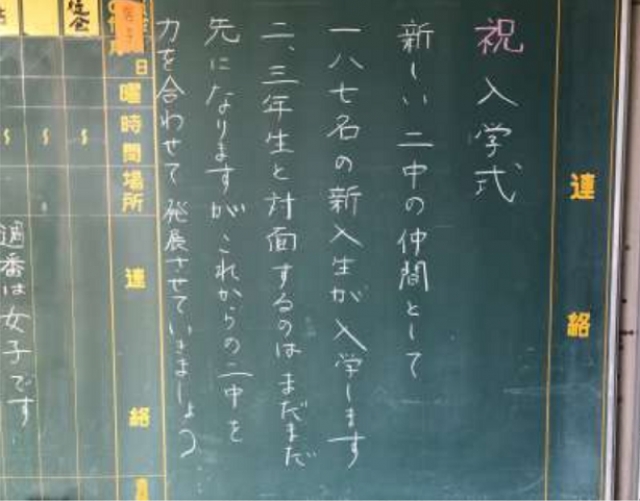 連絡
祝 入学式
新しい二中の仲間として
一八七名の新入生が入学します
二、三年生と対面するのはまだまだ
先になりますがこれからの二中を
力を合わせて発展させていきましょう
日
曜
時間
場所
連絡
週番は女子です